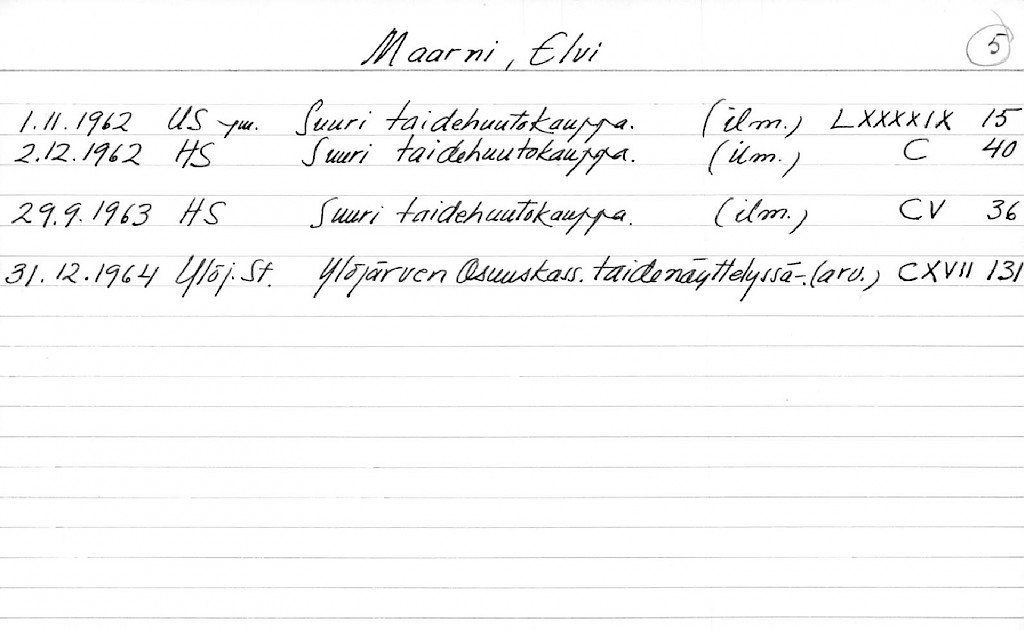 Maarni, Elvi 5
1.11.1962 US ym. Suuri taidehuutokauppa. (ilm.) LXXXXIX 15
2.12.1962 HS Suuri taidehuutokauppa. (ilm.) C 40
29.9.1963 HS Suuri taidehuutokauppa. (ilm.) CV 36
31.12.1964 Ylöj.St. Ylöjärven Osuuskass. taidenäyttelyssä-. (arv.) CXVII 131